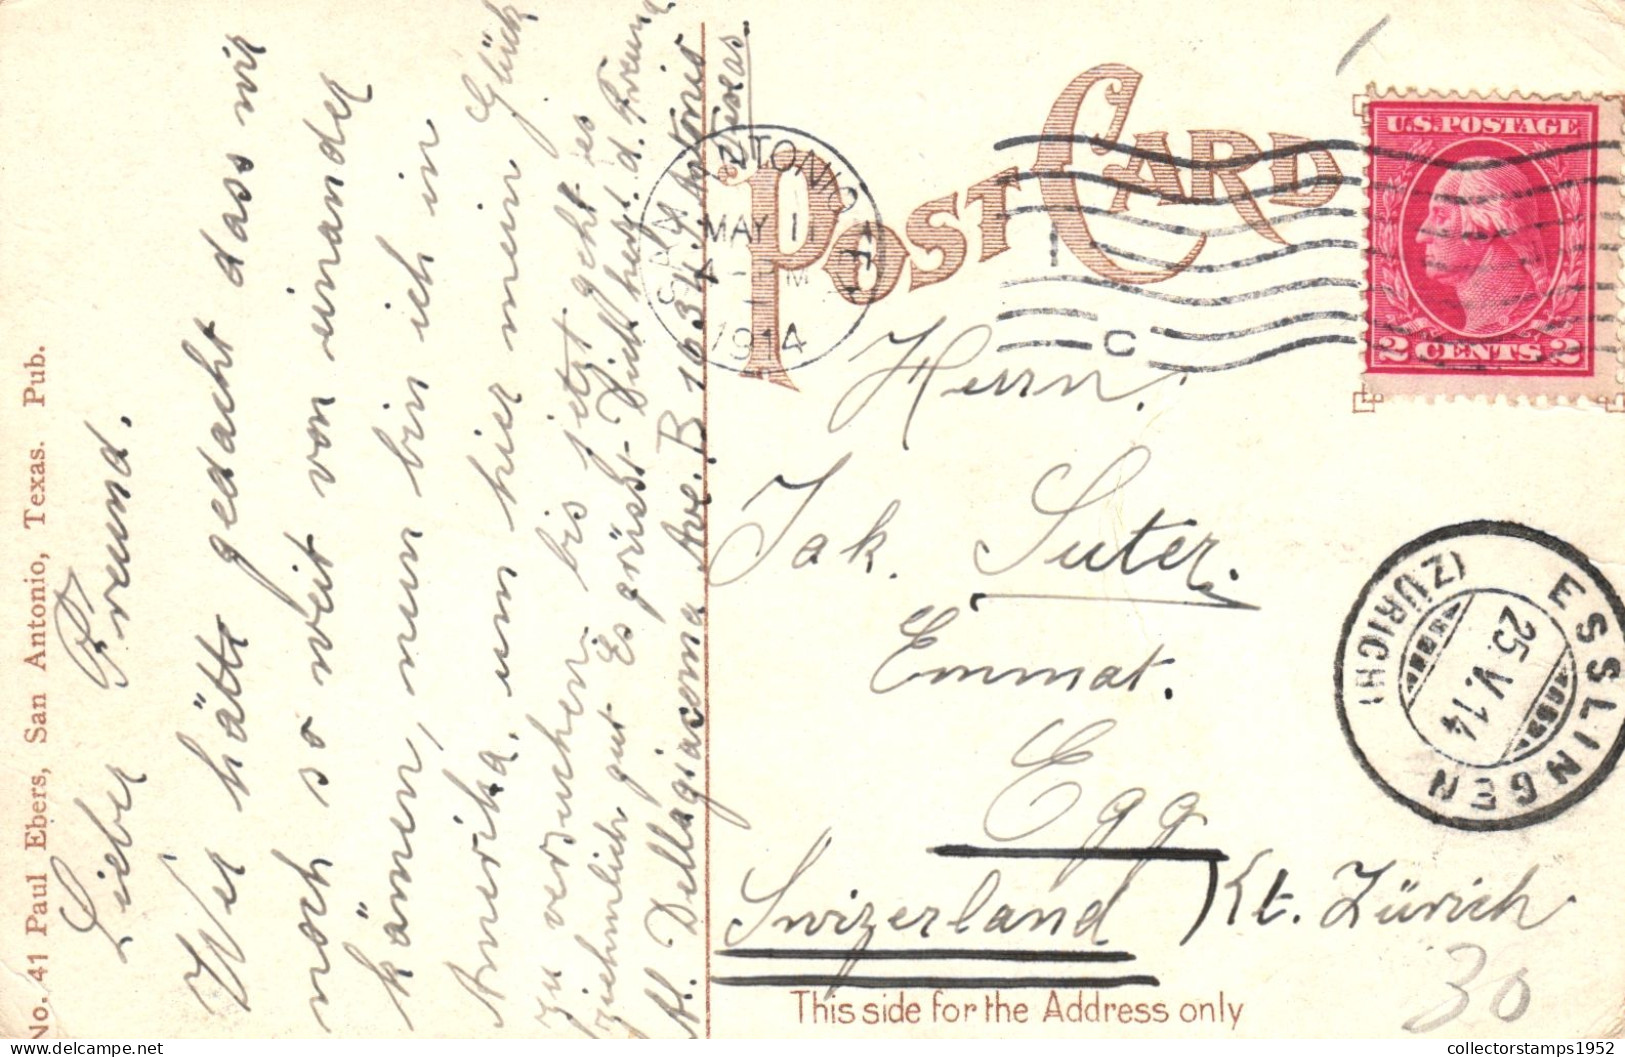 No. 41 Paul Ebers, San Antonio, Texas. Pub.
Lieber Freund.
Wer hätte gedacht dass wir
noch so weit von einander
kämen, nun bin ich in
Amerika, um hier mein Glück
zu versuchen, bis jetzt geht es
ziehmlich gut Es grüsst Dich herzl. d. Freund
A. Dellagiacoma Ave. B 1031 San Antonio
Texas
POST CARD
SAN ANTONIO
MAY 11
4-PM
1914
C
U.S. POSTAGE
2 CENTS 2
Herrn.
Jak. Suter.
Emmat.
Egg
Swizerland Kt. Zürich
ESSLINGEN
(ZÜRICH)
25.V.14
30
This side for the Address only
collectorstamps1952